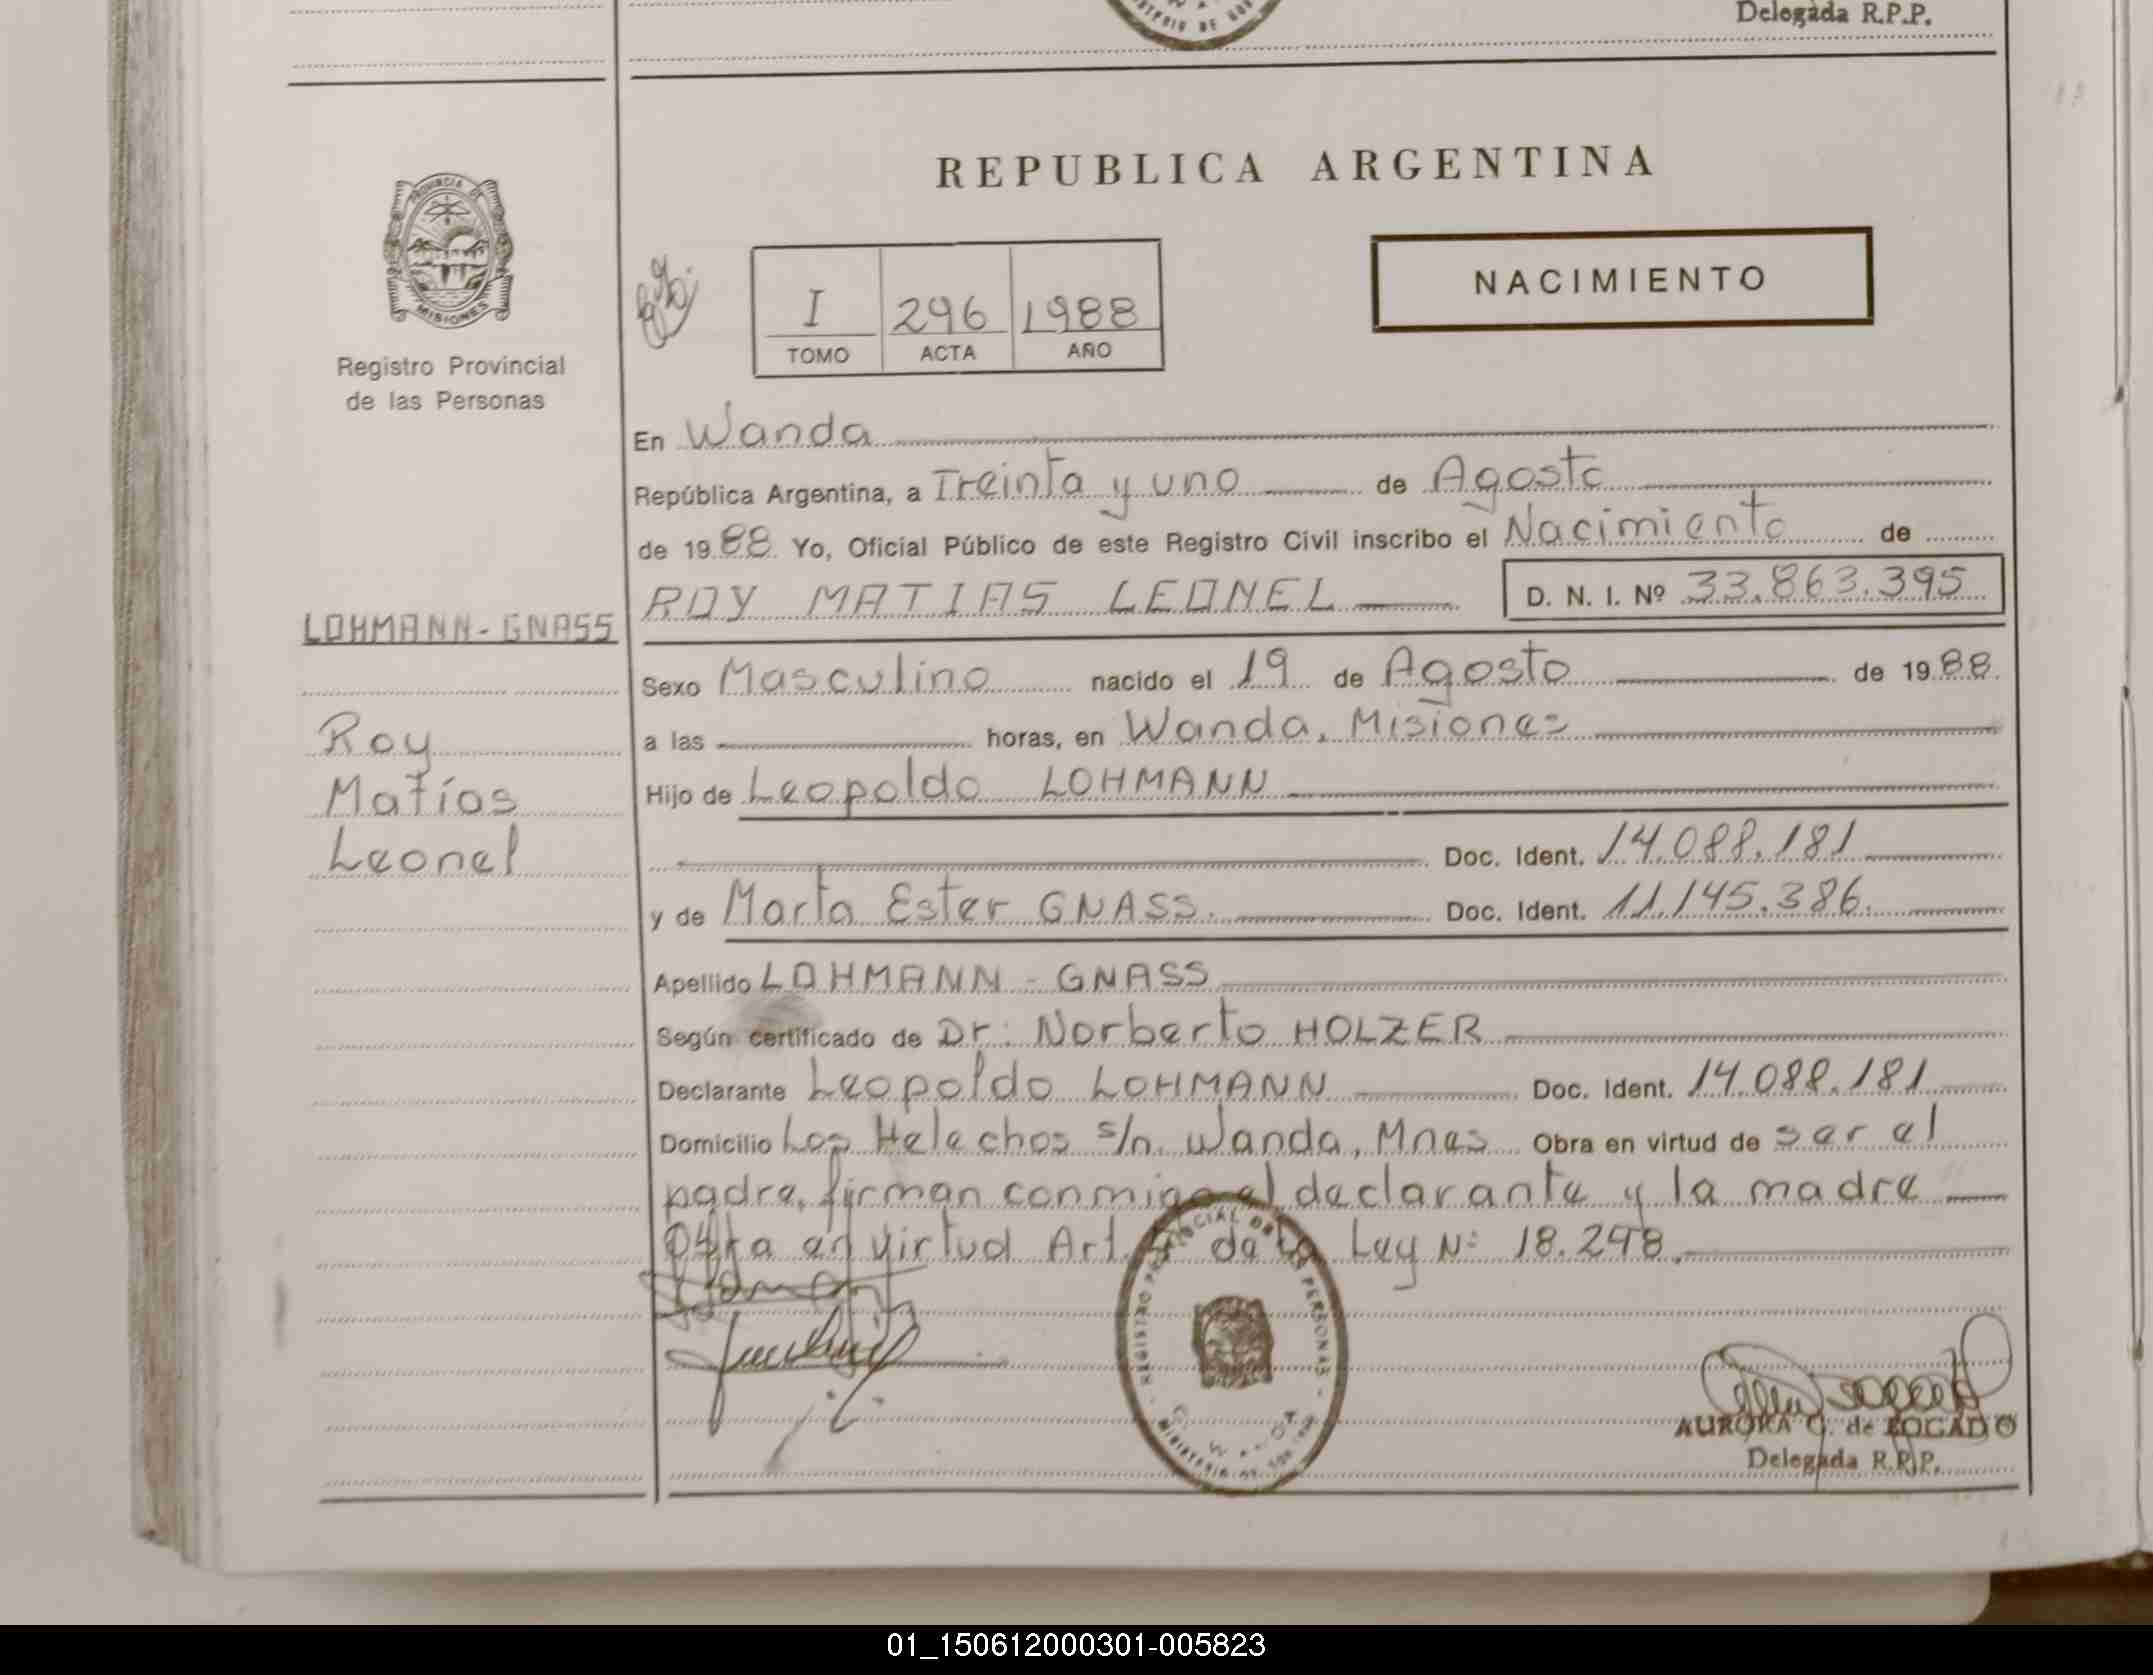 Delegada R.P.P.
REPUBLICA ARGENTINA
PROVINCIA DE
MISIONES
Registro Provincial
de las Personas
I 296 1988
TOMO ACTA AÑO
NACIMIENTO
En Wanda
República Argentina, a Treinta y uno de Agosto
de 1988 Yo, Oficial Público de este Registro Civil inscribo el Nacimiento de
ROY MATIAS LEONEL D. N. I. Nº 33.863.395
LOHMANN-GNASS
Sexo Masculino nacido el 19 de Agosto de 1988
Roy
a las horas, en Wanda, Misiones
Matías
Hijo de Leopoldo LOHMANN
Leonel
Doc. Ident. 14.088.181
y de Marta Ester GNASS. Doc. Ident. 11.145.386.
Apellido LOHMANN - GNASS
Según certificado de Dr: Norberto HOLZER
Declarante Leopoldo LOHMANN Doc. Ident. 14.088.181
Domicilio Los Helechos s/n. Wanda, Mnes Obra en virtud de ser el
padre, firman conmigo el declarante y la madre
Obra en virtud Art. de la Ley Nº 18.248.
REGISTRO PROVINCIAL DE LAS PERSONAS
AURORA G. de BOGADO
Delegada R.P.P.
01_150612000301-005823